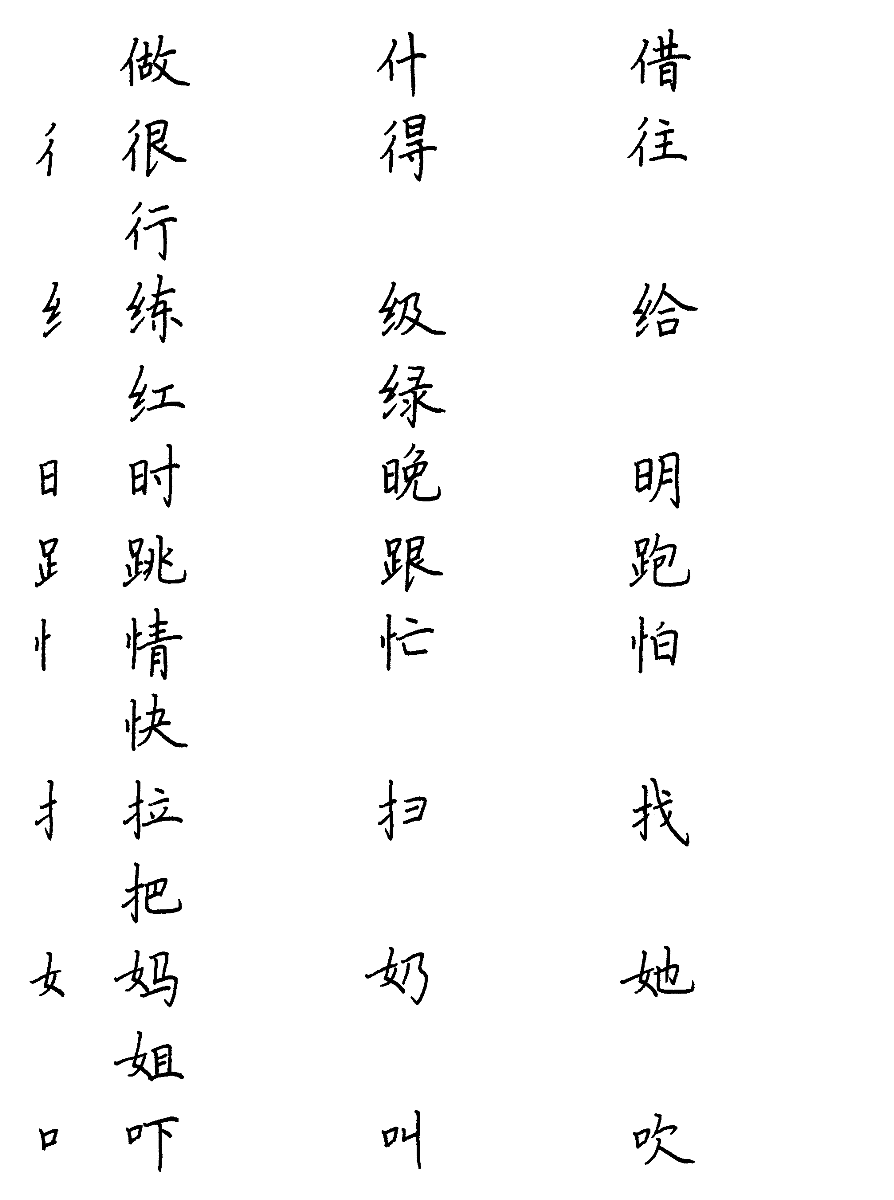 做 什 借
彳 很 得 往
行
纟 练 级 给
红 绿
日 时 晚 明
𧾷 跳 跟 跑
忄 情 忙 怕
快
扌 拉 扫 找
把
女 妈 奶 她
姐
口 吓 叫 吹